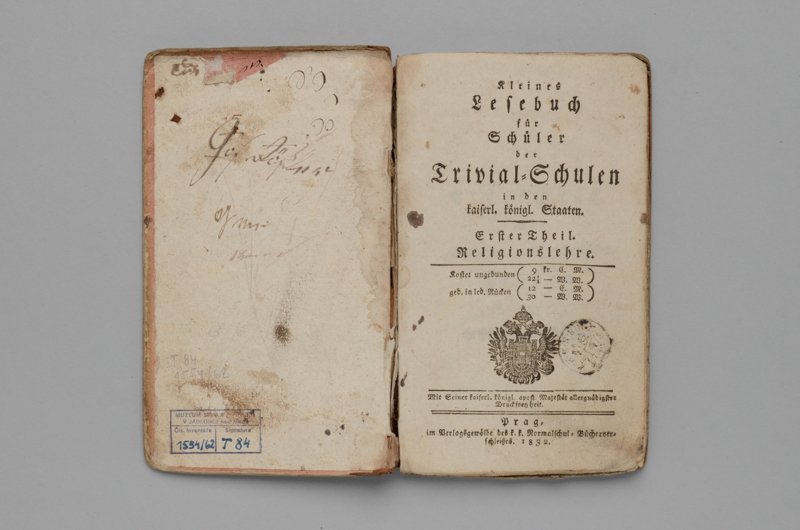 T 84
1554/62
MUZEUM
V JABLONCI
Čís. inventáře Signatura
1554/62 T 84
Kleines
Lesebuch
für
Schüler
der
Trivial-Schulen
in den
kaiserl. königl. Staaten.
Erster Theil.
Religionslehre.
Kostet ungebunden 9 kr. C. M.
22½ — W. W.
geb. in led. Rücken 12 — C. M.
30 — W. W.
Mit Seiner kaiserl. königl. apost. Majestät allergnädigster
Druckfreyheit.
Prag,
im Verlagsgewölbe des k. k. Normalschul-Bücherver-
schleißes. 1832.